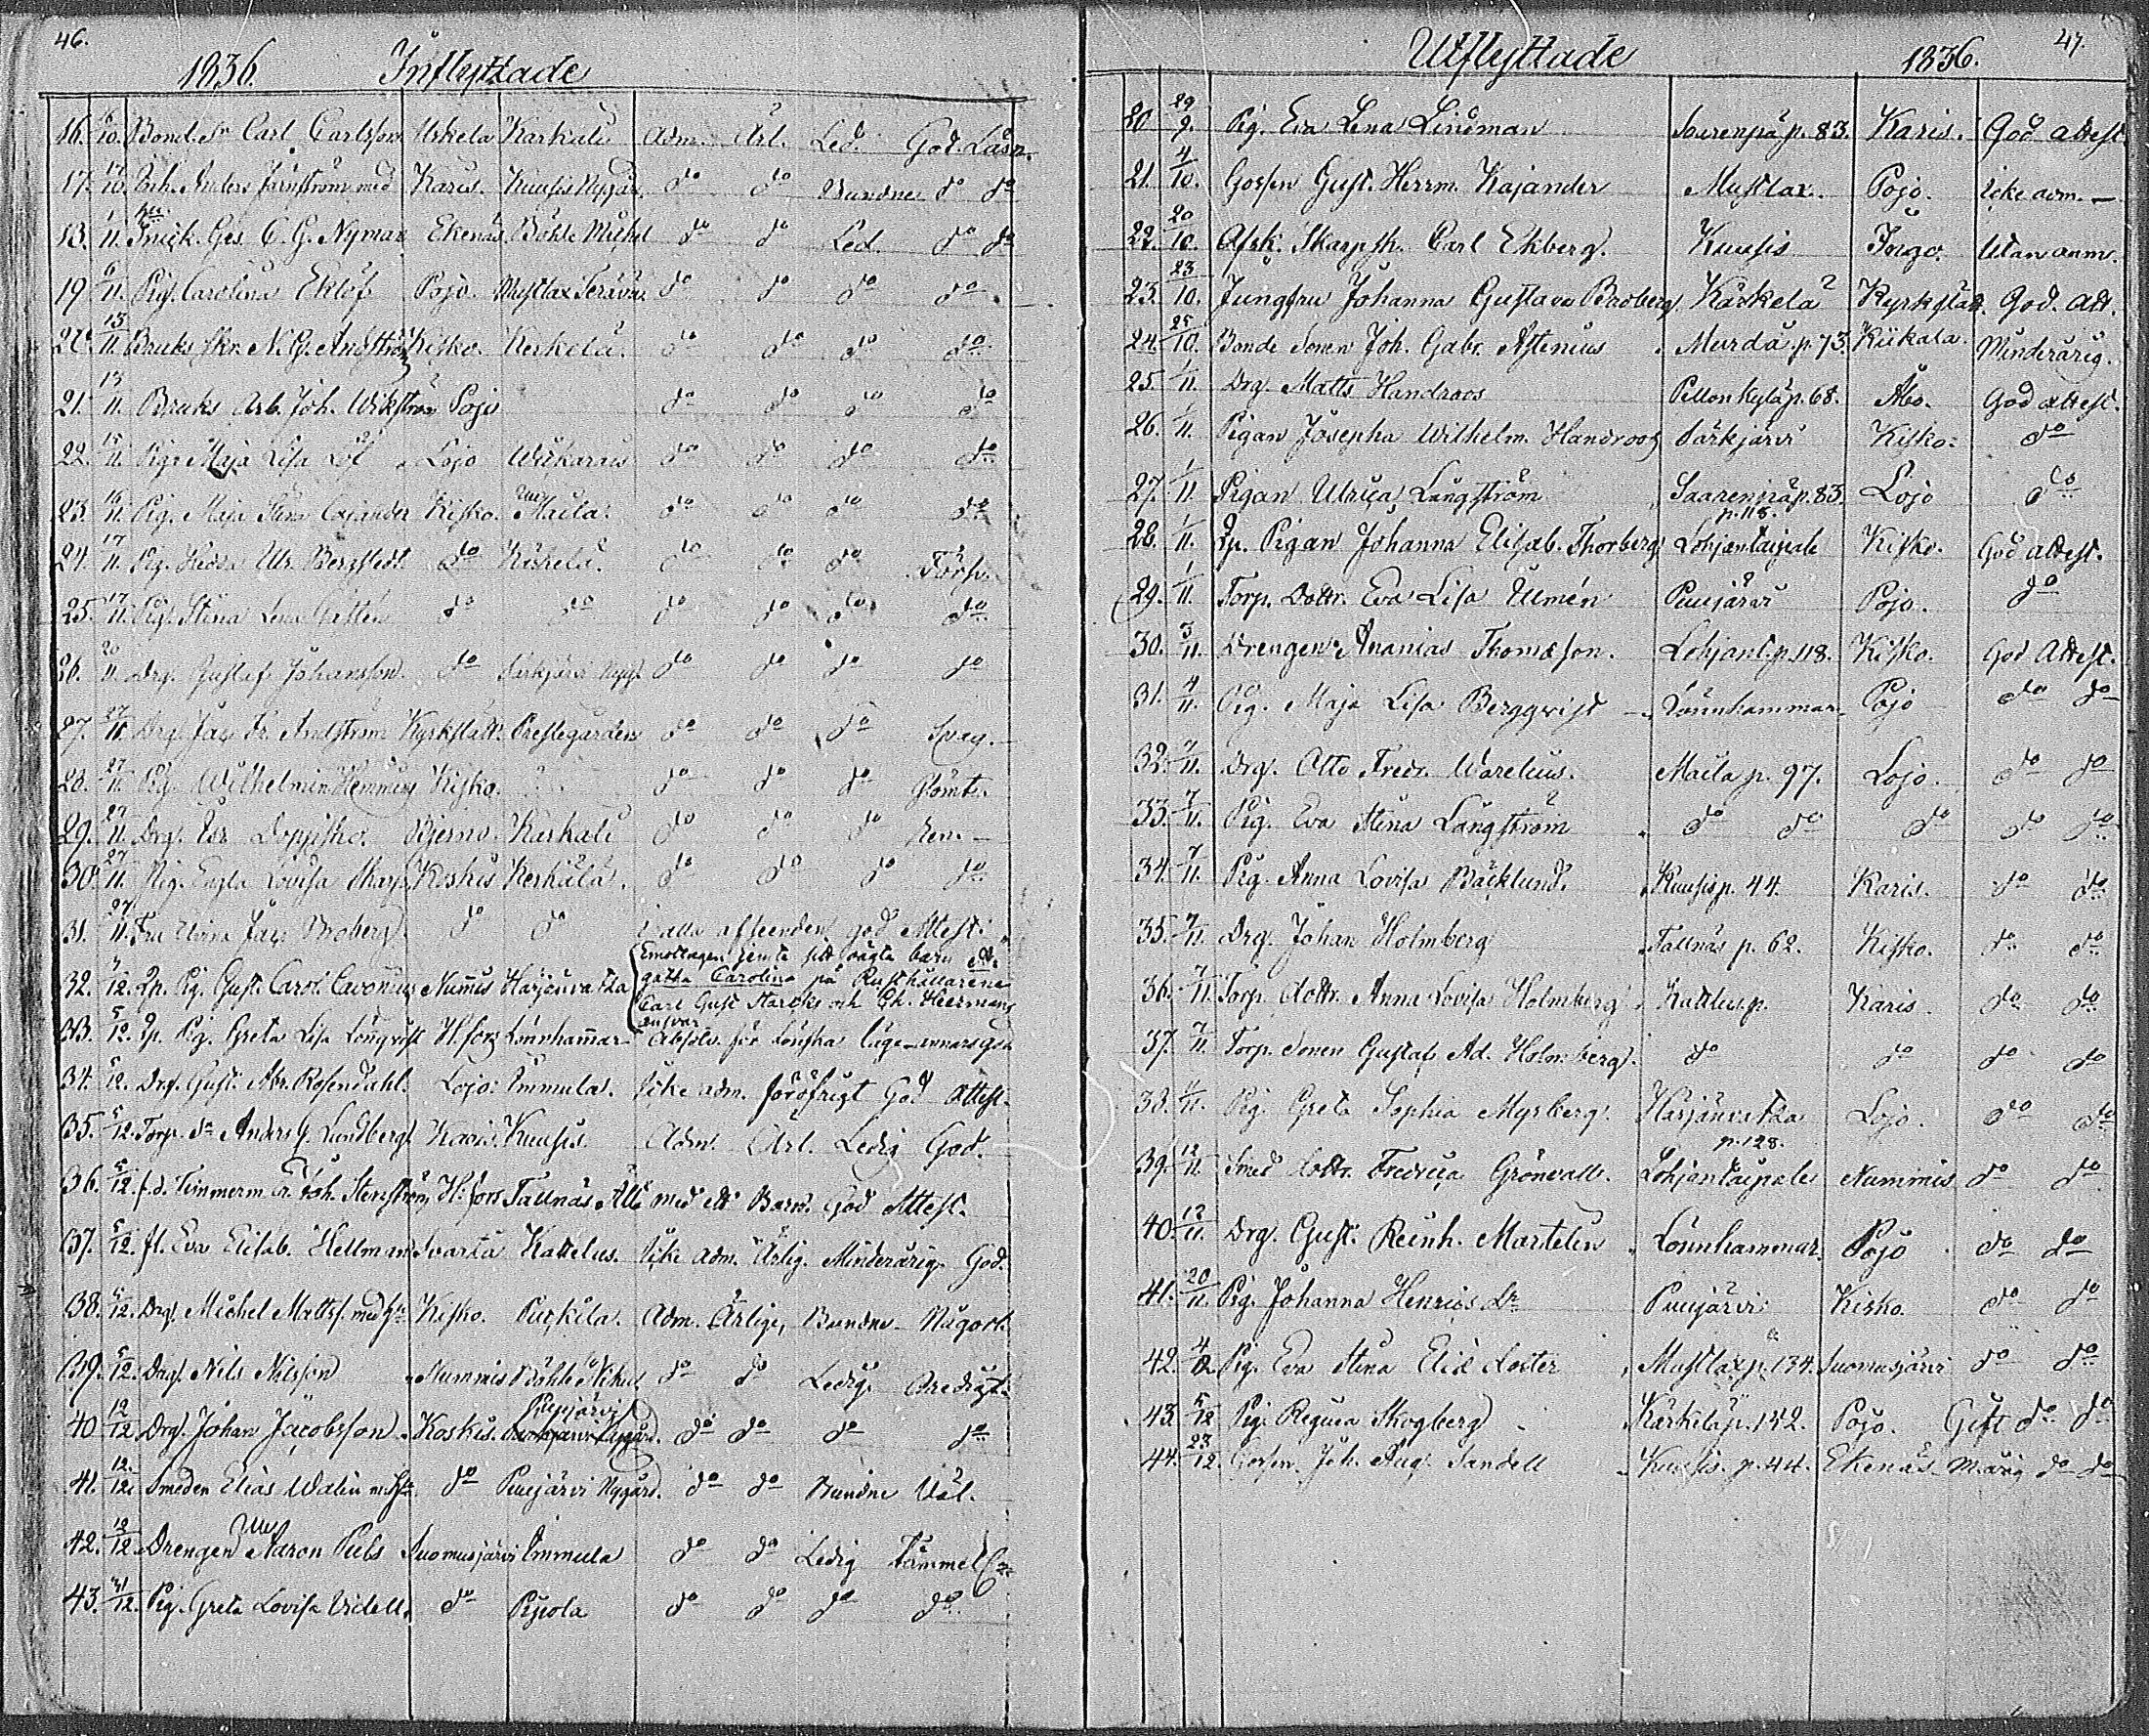 46.
1836. Inflyttade
16. 6/10. Bond. Sn Carl Carlsson Uskela Karkali Adm. Ärl. Led. God. Läsn.
17. 17/10. Anders Järnström med Karis. Kuusis Nygår. do do Bundne do do
18. 1/11. C. G. Nyman Ekenäs Böhle Mickel do do Led. do do
19 9/11. Pig. Carolina Eklöf Pojo. Mustlax do do do do
20. 13/11. Bruks Skr. N. G. Kisko. Kerkelä. do do do do
21. 13/11. Bruks Arb. Joh. Wikström Pojo do do do do
22. 15/11. Pig. Maja Lisa Löf Lojo Wiikarais do do do do
23. 16/11. Pig. Maja Stina Cajander Kisko. Maila. do do do do
24. 17/11. Pig. Hedda Ulr. Bergstedt do Kärkelä. do do do Försv.
25. 17/11. Pig. Stina Lena do do do do do do
26. 20/11. Drg. Gustaf Johansson. do Särkjärvi Nygd do do do do
27. 27/11. Drg. Jac. Fr. Kyrkslätt. Prestegården do do do Svag.
28. 27/11. Pig. Wilhelmin Hemming Kisko. do do do Glömt.
29. 27/11. Drg. Bjerno. Karkali do do do Ren.
30. 27/11. Pig. Engla Lovisa Skarp Koskis Kerkälä. do do do do
31. 27/11. Fru Jac. Broberg. do do i alla afseenden god Attest.
32. 4/12. Qp. Pig. Gust. Carol. Cavonius Nummis Harjänvatka Emottagen jemte sitt oägta barn
gatha Carolina på Rusthållarene
Carl Gust Starcks och Hermans
ansvar
33. 5/12. Qp. Pig. Greta Lisa Lönqvist H.fors Lönnhammar Absolv. för Lönska läge annars god
34. 5/12. Drg. Gust. Abr. Rosendahl. Lojo. Immula. Icke adm. föröfrigt God Attest.
35. 5/12. Torp. Sn Anders G. Lundberg Karis. Kuusis. Adm. Ärl. Ledig God.
36. 5/12. f.d. Timmerm. Gr. Joh. Stenström H:fors Tallnäs. Allt med ett Barn. God Attest.
37. 5/12. fl. Eva Elisab. Hellman Svarta Kattelus. Icke adm. Ärlig. Minderårig. God.
38. 5/12. Drg. Michel Mattss. med Hu Kisko. Puckila. Adm. Ärlige, Bundne. Någorl.
39. 5/12. Drg. Nils Nilsson Nummis Böhle Nikus. do do Ledig.
Puujärvi
40 12/12. Drg. Johan Jacobsson. Koskis. do do do do
41. 12/12. Smeden Elias Walin m. Hu. do Puujärvi Nygård. do do Bundne Väl.
42. 12/12 Drengen Aaron Puls Suomusjärvi Immula do do Ledig Tämmel.
43. 31/12. Pig. Greta Lovisa Videll. do Pipola do do do do
47.
Utflyttade 1836.
20 29/9. Pig. Eva Lena Lindman Saarenpä p. 83. Karis. God attest.
21. 4/10. Gossen Gust. Herrm. Kajander Mustlax. Pojo. icke adm.
22. 20/10. Afsk. Skarpsk. Carl Ekberg. Kuusis Ingo. Utan anm.
23. 23/10. Jungfru Johanna Gustava Broberg Kärkelä Kyrkslätt. God. Att.
24. 25/10. Bonde Sonen Joh. Gabr. Astenius Murda p. 73. Kiikala. Minderårig.
25. 1/11. Drg. Matts Handroos Pellonkylä p. 68. Åbo. God attest.
26. 1/11. Pigan Josepha Wilhelm. Handroos Särkjärvi Kisko. do
27. 1/11. Pigan Ulrica Långström Saarenpä p. 83. Lojo do
p. 118.
28. 1/11. Qp. Pigan Johanna Elisab. Thorberg Lohjantaipale Kisko. God attest.
29. 1/11. Torp. Dottr. Eva Lisa Ulmén Puujärvi Pojo. do
30. 3/11. Drengen Ananias Thomasson. Lohjant. p. 118. Kisko. God Attest.
31. 4/11. Pig. Maja Lisa Bergqvist Lönnhammar Pojo do do
32. 7/11. Drg. Otto Fredr. Warelius. Maila p. 97. Lojo. do do
33. 7/11. Pig. Eva Stina Långström do do do do do
34. 7/11. Pig. Anna Lovisa Bäcklund. Kuusis p. 44. Karis. do do
35. 7/11. Drg. Johan Holmberg Tallnäs p. 62. Kisko. do do
36. 7/11. Torp. dottr. Anna Lovisa Holmberg Kattlus p. Karis. do do
37. 7/11. Torp. Sonen Gustaf Ad. Holmberg. do do do do
38. 11/11. Pig. Greta Sophia Myrberg. Harjänvatka Lojo. do do
p. 128.
39. 12/11. Smed dottr. Fredrica Grönvall. Lohjantaipale Nummis do do
40. 12/11. Drg. Gust. Reinh. Martelin Lönnhammar. Pojo do do
41. 20/11. Pig. Johanna Henrics Dr Puujärvi Kisko. do do
42. 4/12 Pig. Eva Stina Elis Doter Mustlax p. 134. Suomusjärvi do do
43. 5/12 Pig. Regina Skogberg Kärkelä p. 152. Pojo. Gift do do
44. 23/12. Gossen. Joh. Aug. Sandell Kuusis. p. 44. Ekenäs. M:årig do do